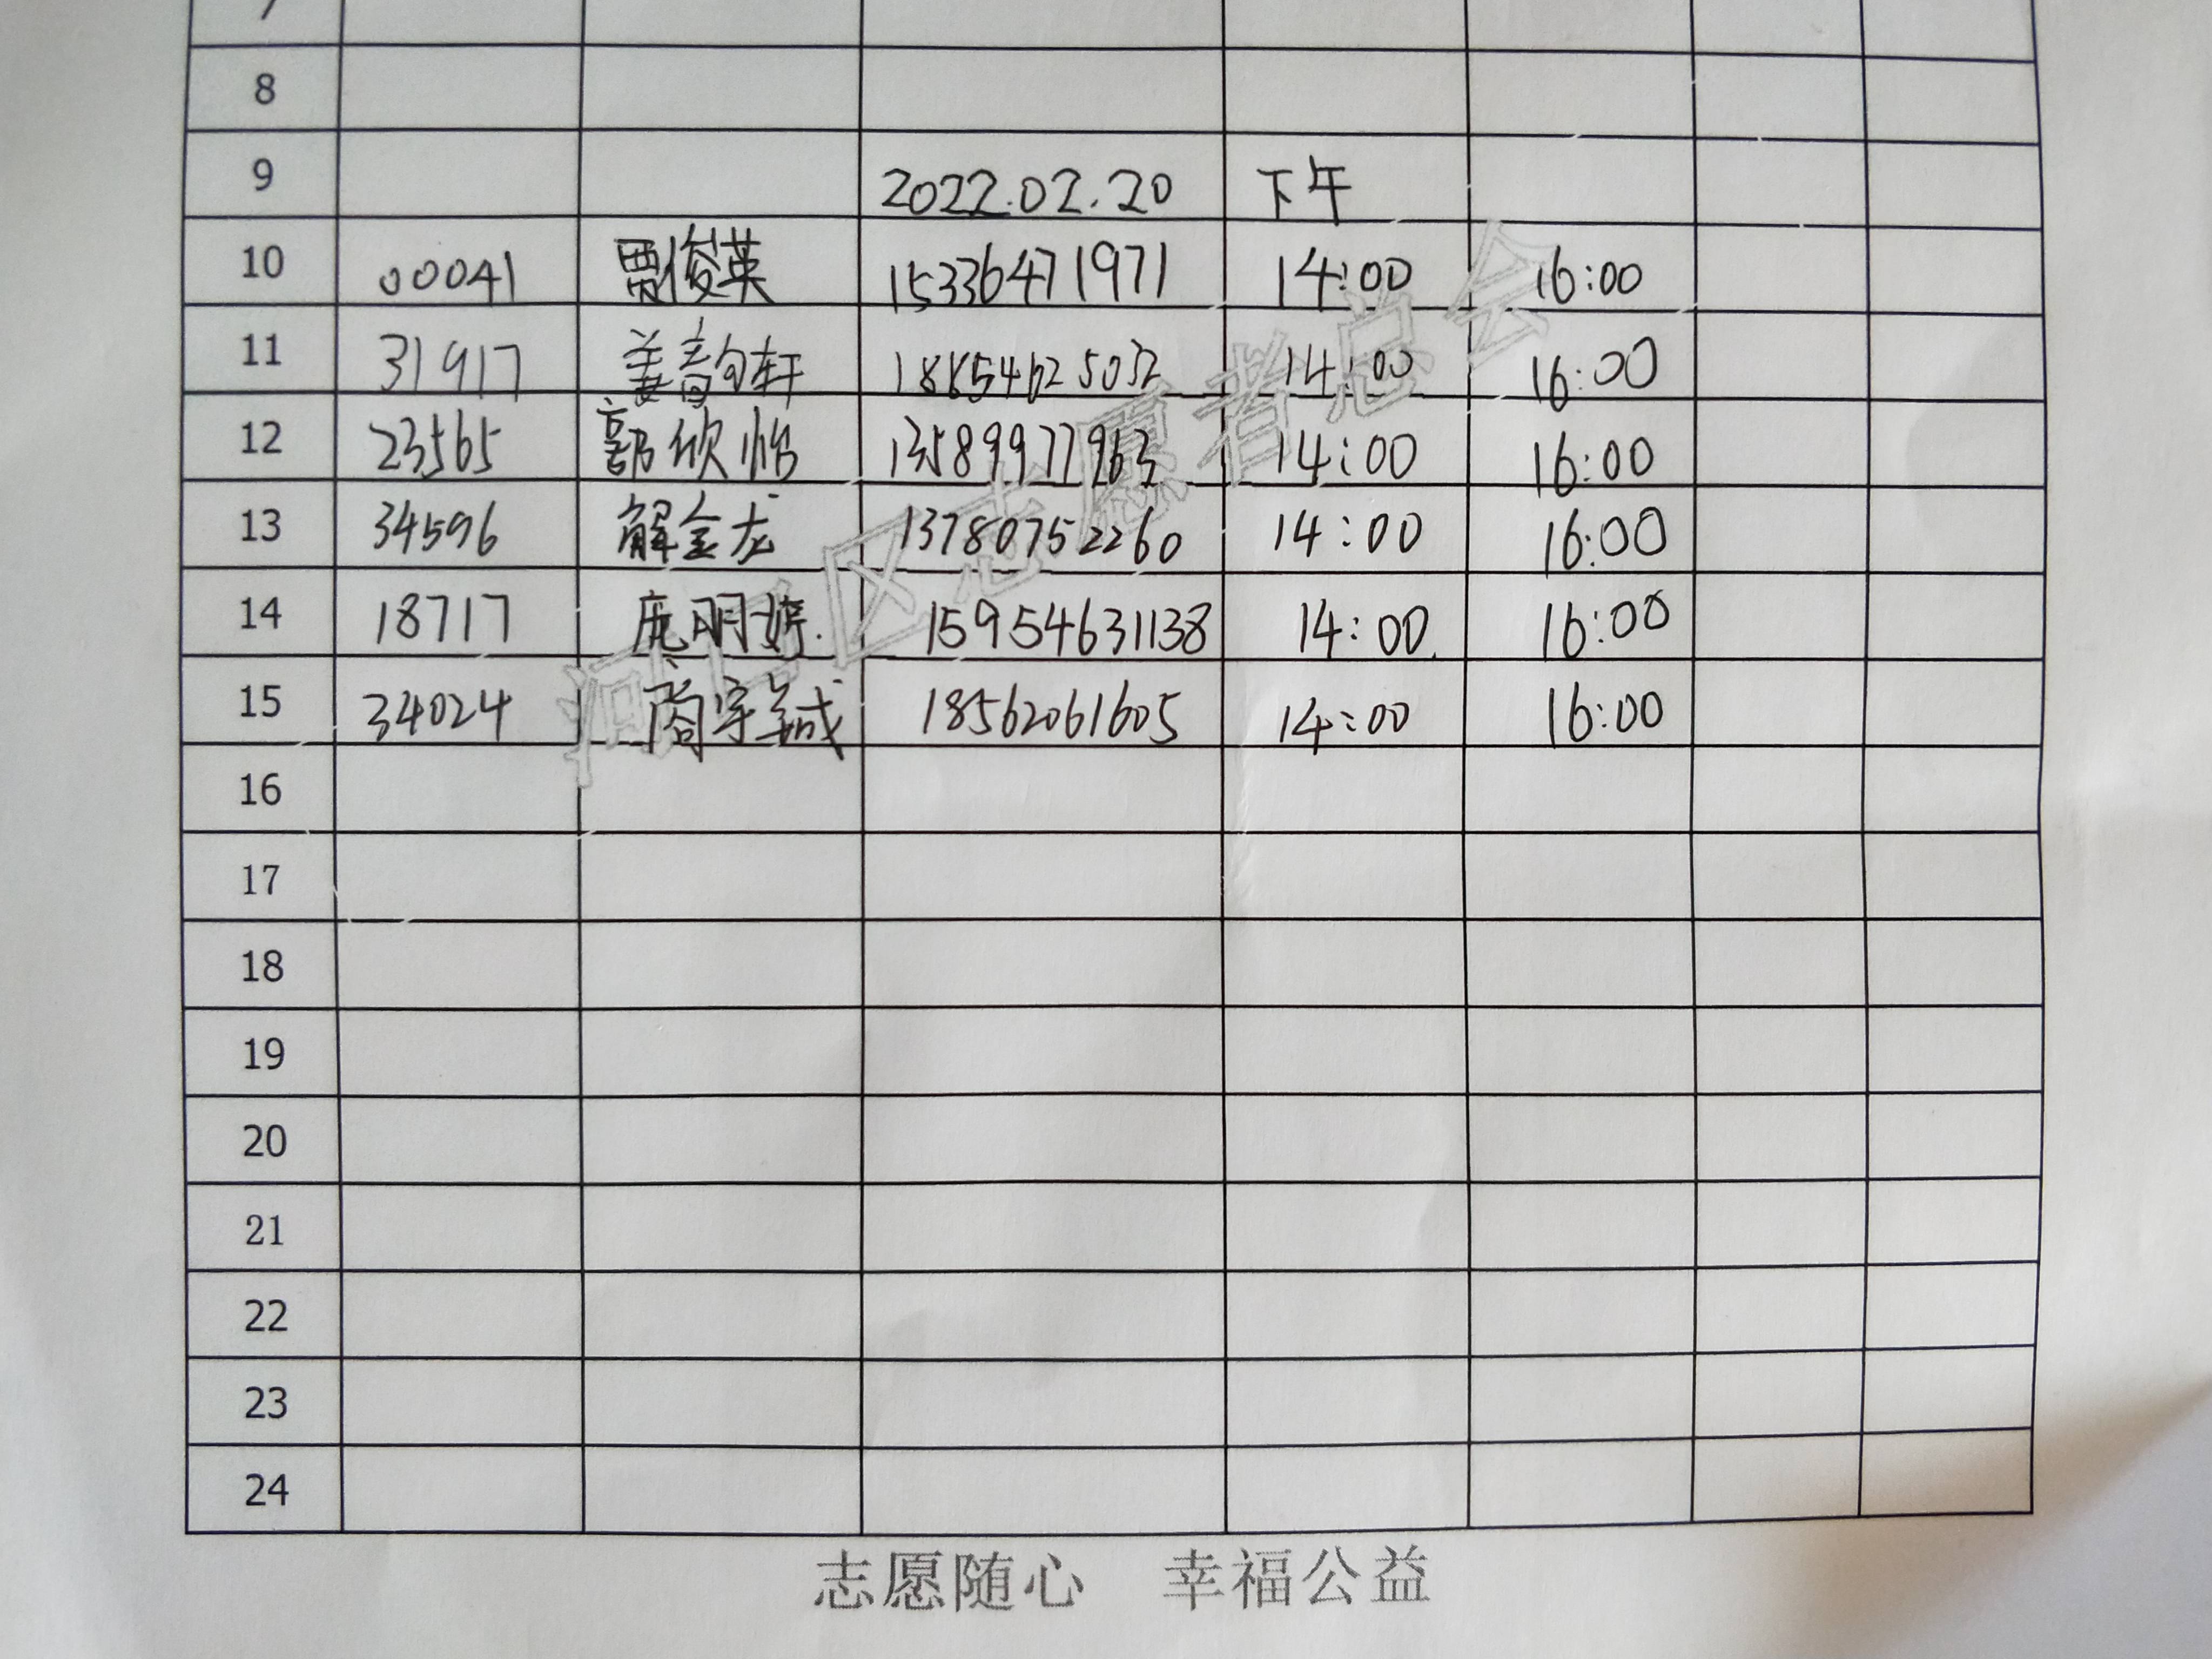 7
8
9 2022.02.20 下午
10 00041 贾俊英 15336471971 14:00 16:00
11 31917 姜韵轩 14:00 16:00
12 23565 郭欣怡 13589977963 14:00 16:00
13 34596 解金龙 13780752260 14:00 16:00
14 18717 庞明婷. 15954631138 14:00. 16:00
15 34024 18562061605 14:00 16:00
16
17
18
19
20
21
22
23
24
河口区志愿者总会
志愿随心 幸福公益